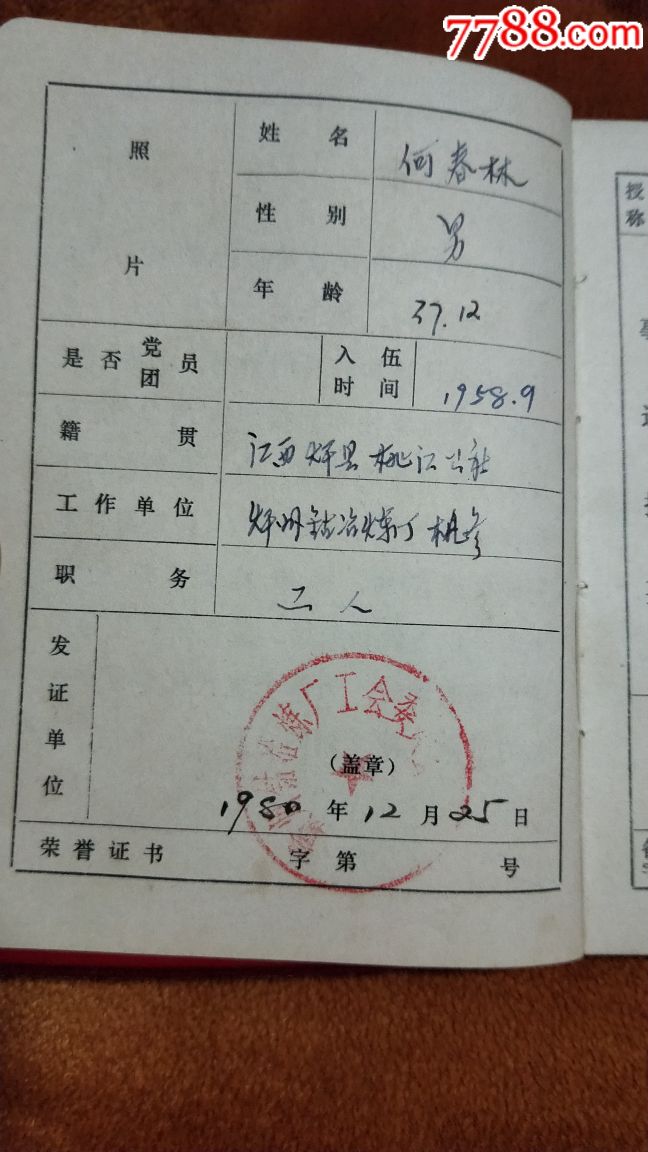 7788.com
照片
姓名 何春林
性别 男
年龄 37.12
是否党团员
入伍时间 1958.9
籍贯 江西 县桃江公社
工作单位 钴冶炼厂机修
职务 工人
发证单位
钴冶炼厂工会委员
(盖章)
1980年12月25日
荣誉证书 字第 号
授
称